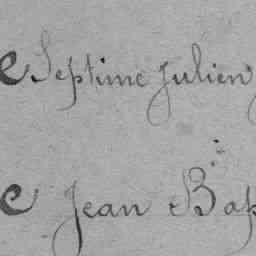 e Septime Julien
e Jean Bap